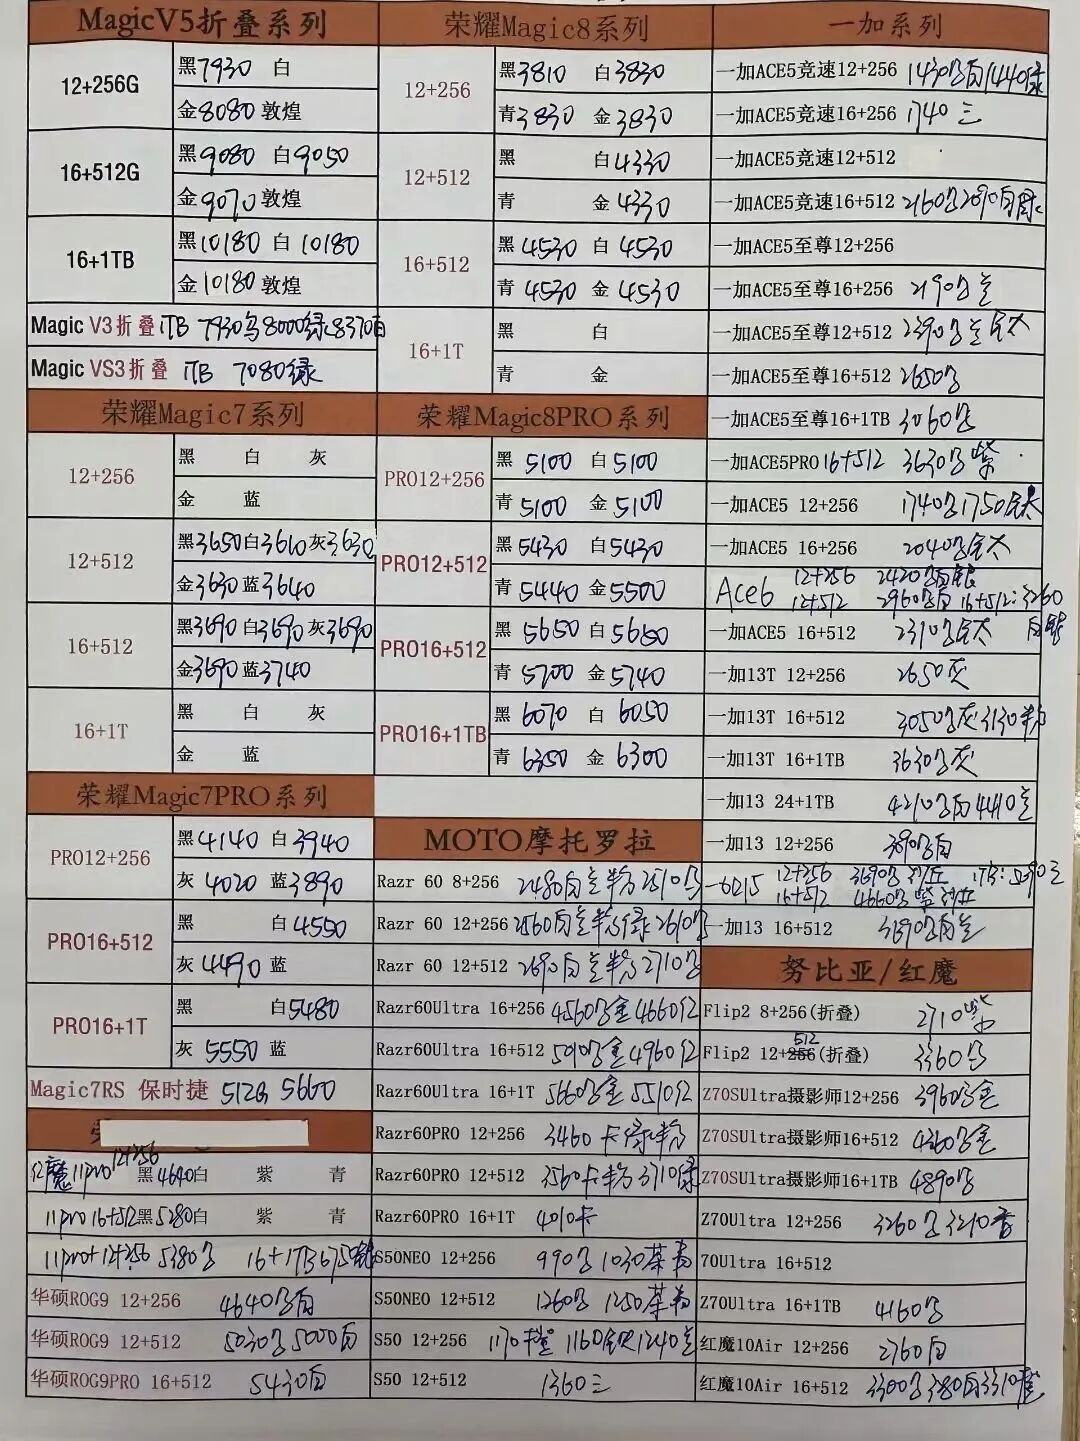 MagicV5折叠系列
12+256G
黑7930 白
金8080敦煌
16+512G
黑9080 白9050
金9070敦煌
16+1TB
黑10180 白10180
金10180敦煌
Magic V3折叠 1TB 7930鸟8000绿8370白
Magic VS3折叠 1TB 7080绿
荣耀Magic7系列
12+256
黑 白 灰
金 蓝
12+512
黑3650白3660灰3630
金3630蓝3640
16+512
黑3690白3690灰3690
金3690蓝3740
16+1T
黑 白 灰
金 蓝
荣耀Magic7PRO系列
PRO12+256
黑4140 白3940
灰4020 蓝3890
PRO16+512
黑 白4550
灰4490 蓝
PRO16+1T
黑 白5480
灰5550 蓝
Magic7RS 保时捷 512G 5660
红魔11pro 12+256 黑4640白 紫 青
11pro 16+512黑5280白 紫 青
11pro+12+256 5380 16+1TB6750
华硕ROG9 12+256 4640 白
华硕ROG9 12+512 5030 5000白
华硕ROG9PRO 16+512 5430白
荣耀Magic8系列
12+256
黑3810 白3830
青3830 金3830
12+512
黑 白4330
青 金4330
16+512
黑4530 白4530
青4530 金4530
16+1T
黑 白
青 金
荣耀Magic8PRO系列
PRO12+256
黑5100 白5100
青5100 金5100
PRO12+512
黑5430 白5430
青5440 金5500
PRO16+512
黑5650 白5650
青5700 金5740
PRO16+1TB
黑6070 白6050
青6350 金6300
MOTO摩托罗拉
Razr 60 8+256 2480白兰粉2510
Razr 60 12+256 2560白兰粉绿2610
Razr 60 12+512 2690白兰粉2710
Razr60Ultra 16+256 4560 金4660红
Razr60Ultra 16+512 5090 金4960红
Razr60Ultra 16+1T 5660 金5510红
Razr60PRO 12+256 3460卡绿粉
Razr60PRO 12+512 3560卡粉3710绿
Razr60PRO 16+1T 4010卡
S50NEO 12+256 990 1030茶青
S50NEO 12+512 1260 1250茶青
S50 12+256 1170 1160 1240兰
S50 12+512 1360三
一加系列
一加ACE5竞速12+256 1430 白1440绿
一加ACE5竞速16+256 1740三
一加ACE5竞速12+512
一加ACE5竞速16+512 2160 2090白绿
一加ACE5至尊12+256
一加ACE5至尊16+256 2190 兰
一加ACE5至尊12+512 2390 兰钛
一加ACE5至尊16+512 2650
一加ACE5至尊16+1TB 3060
一加ACE5PRO 16+512 3630 紫
一加ACE5 12+256 1740 1750钛
一加ACE5 16+256 2040 钛
Ace6 12+256 2420 白银
12+512 2960 白 16+512:3260
一加ACE5 16+512 2310 钛 白银
一加13T 12+256 2650灰
一加13T 16+512 3050 灰3130粉
一加13T 16+1TB 3630 灰
一加13 24+1TB 4210 白4410兰
一加13 12+256 3090 白
一加15 12+256 3690 1TB:5390
16+512 4660 紫
一加13 16+512 3690 白兰
努比亚/红魔
Flip2 8+256(折叠) 2710紫
Flip2 12+512(折叠) 3360
Z70SUltra摄影师12+256 3960 金
Z70SUltra摄影师16+512 4360 金
Z70SUltra摄影师16+1TB 4890
Z70Ultra 12+256 3260 3210青
70Ultra 16+512
Z70Ultra 16+1TB 4160
红魔10Air 12+256 2760白
红魔10Air 16+512 3300 3380白3310